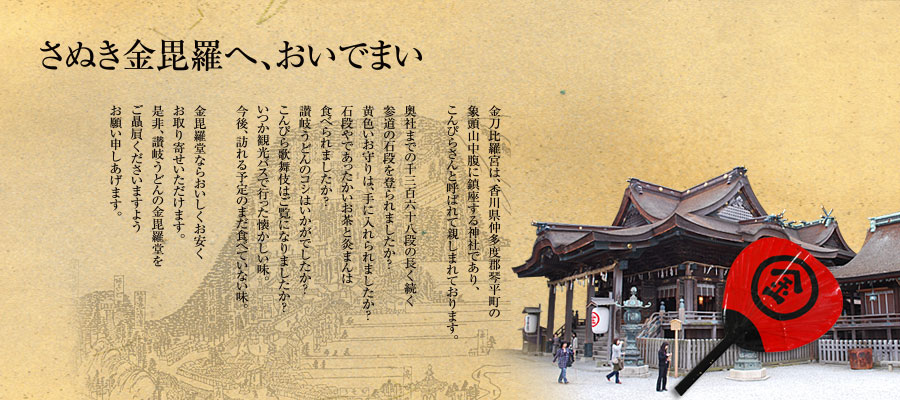 さぬき金毘羅へ、おいでまい
金刀比羅宮は、香川県仲多度郡琴平町の
象頭山中腹に鎮座する神社であり、
こんぴらさんと呼ばれて親しまれております。
奥社までの千三百六十八段の長く続く
参道の石段を登られましたか?
黄色いお守りは、手に入れられましたか?
石段やであったかいお茶と灸まんは
食べられましたか?
讃岐うどんのコシはいかがでしたか?
こんぴら歌舞伎はご覧になりましたか?
いつか観光バスで行った懐かしい味。
今後、訪れる予定のまだ食べていない味。
金毘羅堂ならおいしくお安く
お取り寄せいただけます。
是非、讃岐うどんの金毘羅堂を
ご贔屓くださいますよう
お願い申しあげます。
金